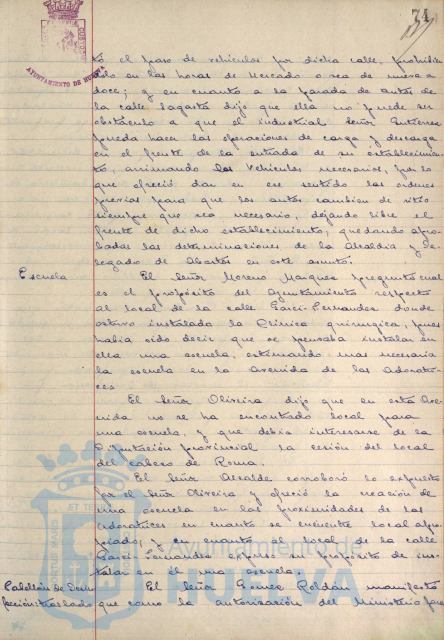 74
AYUNTAMIENTO DE HUELVA
to el paso de vehiculos por dicha calle, prohibien
dolo en las horas de Mercado o sea de nueve a
doce; y en cuanto a la parada de autos de
la calle Sagasta dijo que ella no puede ser
obstáculo a que el industrial Señor Gutierrez
pueda hacer las operaciones de carga y descarga
en el frente de la entrada de su establecimien
to, arrimando los vehiculos necesarios, por lo
que ofreció dar en ese sentido las ordenes
previas para que los autos cambien de sitio
siempre que sea necesario, dejando libre el
frente de dicho establecimiento, quedando apro-
badas las determinaciones de la Alcaldia y De-
legado de Abastos en este asunto.
Escuela El Señor Moreno Marquez preguntó cual
es el propósito del Ayuntamiento respecto
al local de la calle Garci-Fernandez donde
estuvo instalada la Clínica quirurgica, pues
habia oido decir que se pensaba instalar en
ella una escuela, estimando mas necesaria
la escuela en la Avenida de las Adoratri-
ces
El Señor Oliveira dijo que en esta Ave-
nida no se ha encontrado local para
una escuela, y que debia interesarse de la
Diputación provincial la cesión del local
del cabezo de Roma.
El Señor Alcalde corroboró lo expuesto
por el Señor Oliveira y ofreció la creación de
una escuela en las proximidades de las
Adoratrices en cuanto se encuentre local apro-
piado, y en cuanto al local de la calle
Garci-Fernandez expuso su propósito de ins-
talar en él una escuela.
El Señor Gomez Roldán manifestó
que como la autorización del Ministerio para
Ayuntamiento de
HUELVA